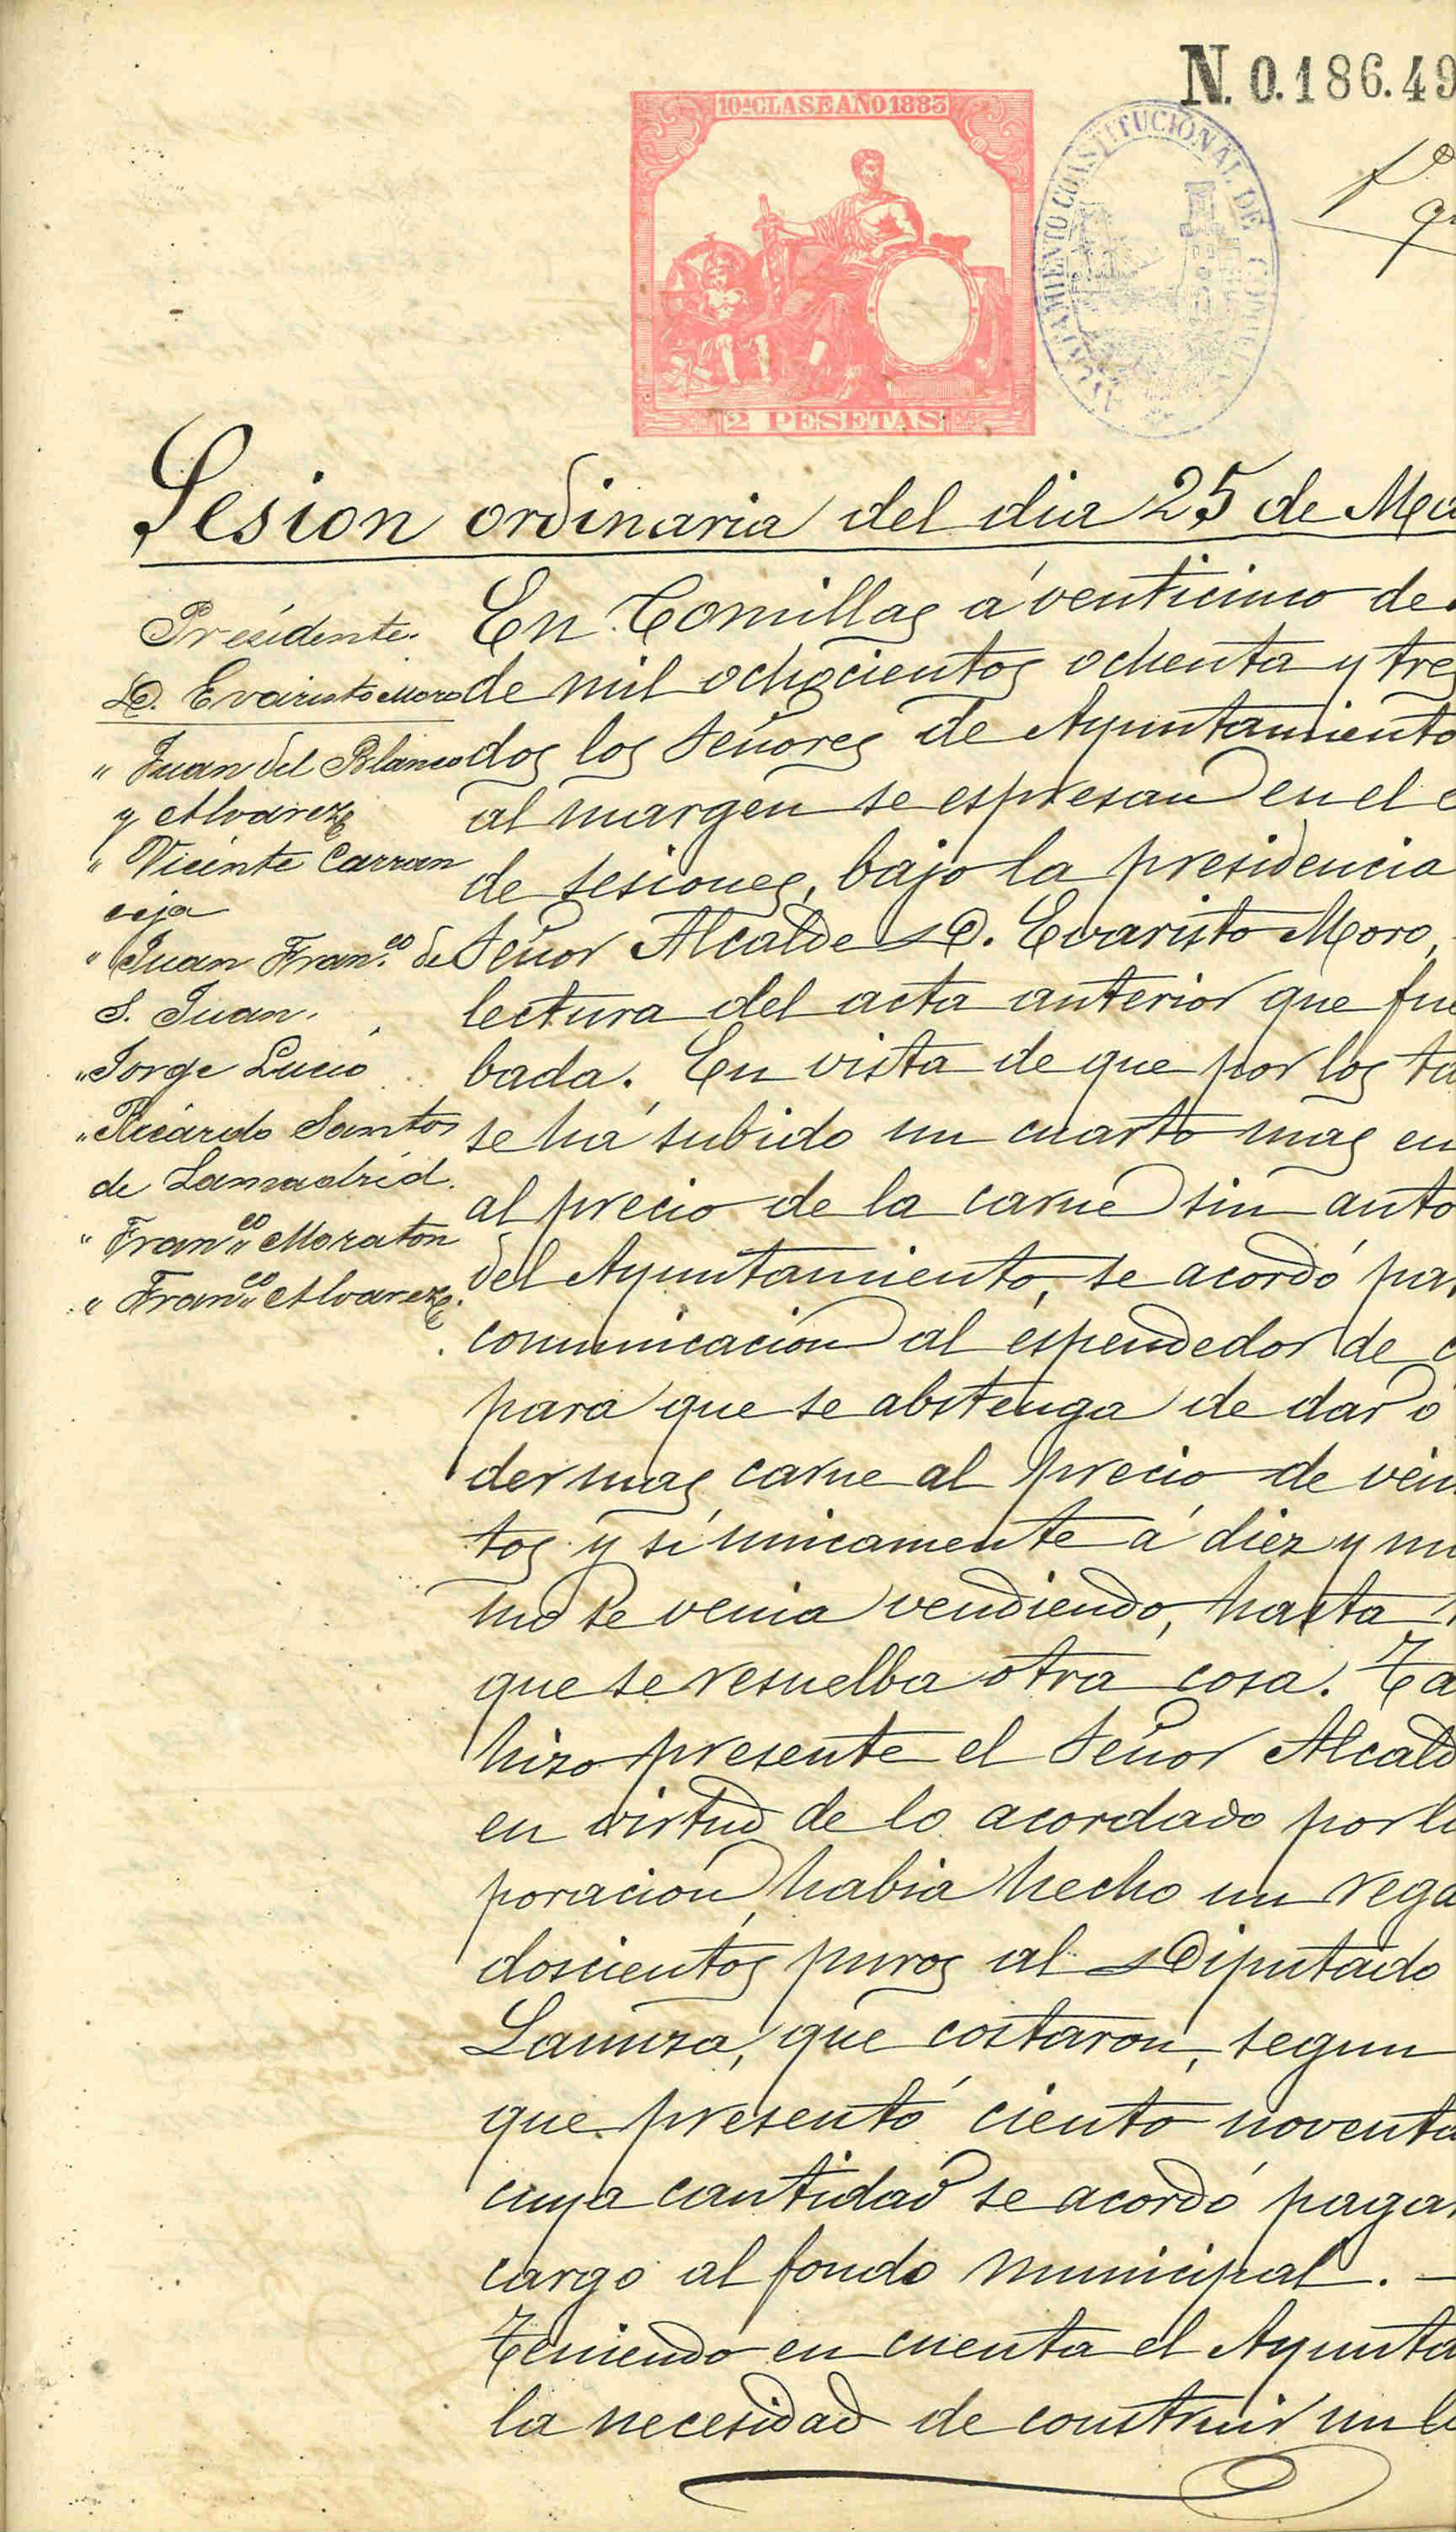 N. 0.186.49
10ª CLASE AÑO 1883
AYUNTAMIENTO CONSTITUCIONAL DE COMILLAS
2 PESETAS
Sesion ordinaria del dia 25 de Ma
Presidente.
D. Evaristo Moro
" Juan del Blanco
y Alvarez
" Vicente Carran
ceja
" Juan Franco. de
S. Juan.
" Jorge Lucio
" Ricardo Santos
de Lamadrid.
" Franco. Moraton
" Franco. Alvarez.
En Comillas á venticinco de
de mil ochocientos ochenta y tres
dos los Señores de Ayuntamiento
al margen se espresan en el
de sesiones, bajo la presidencia
Señor Alcalde D. Evaristo Moro,
lectura del acta anterior que fue
bada. En vista de que por los ta
se há subido un cuarto mas en
al precio de la carne sin auto
del Ayuntamiento, se acordó pa
comunicación al espendedor de c
para que se abstenga de dar ó
der mas carne al precio de vein
tos y sí unicamente á diez y nu
mo se venia vendiendo, hasta
que se resuelba otra cosa. Ta
hizo presente el Señor Alcald
en virtud de lo acordado por l
poración, habia hecho un rega
doscientos puros al Diputado
Lanuza, que costaron, segun
que presentó ciento noventa
cuya cantidad se acordó paga
cargo al fondo municipal. —
Teniendo en cuenta el Ayunta
la necesidad de construir un l